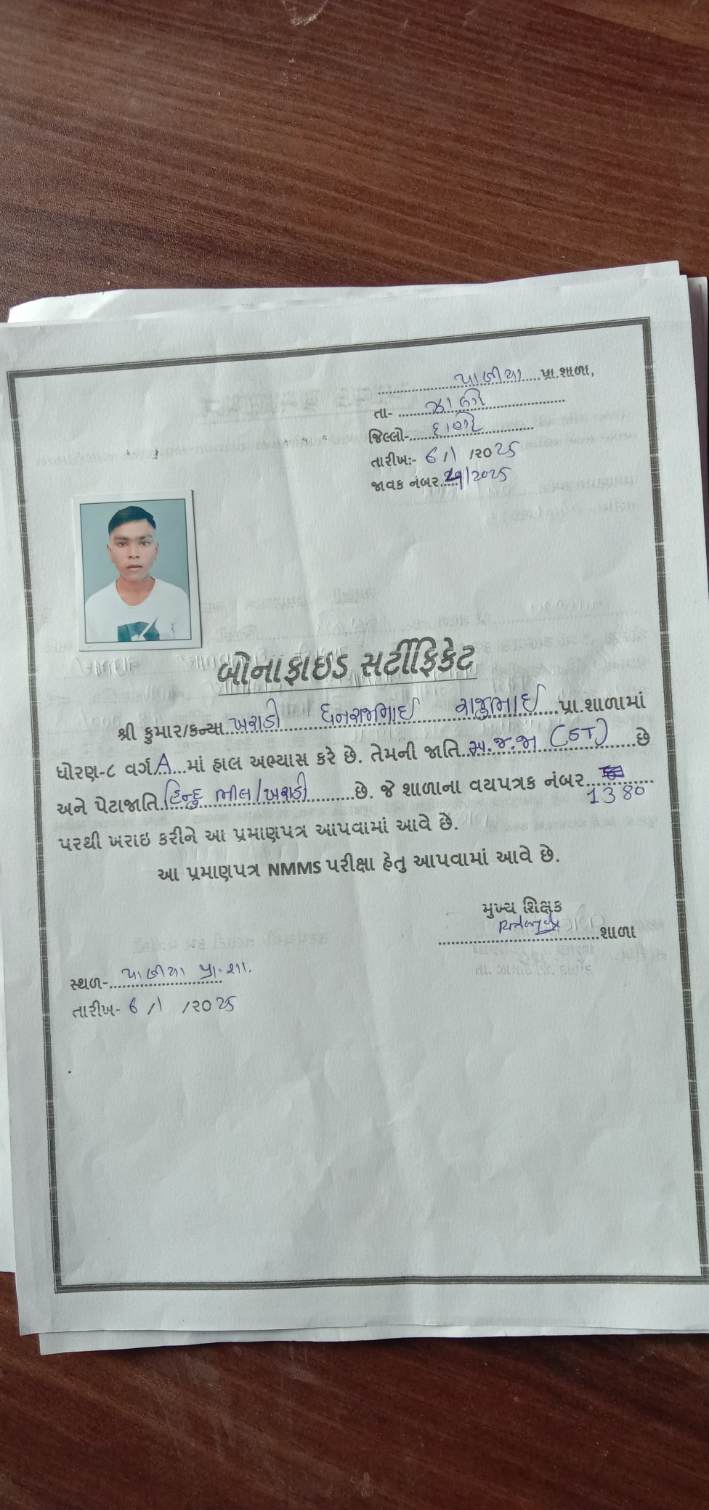 પ્રા.શાળા,
તા-
જિલ્લો-
તારીખ:- 6/1/2025
જાવક નંબર 29/2025
બોનાફાઇડ સર્ટીફિકેટ
શ્રી કુમાર/કન્યા ખરાડી રાજુભાઈ પ્રા.શાળામાં
ધોરણ-૮ વર્ગ A માં હાલ અભ્યાસ કરે છે. તેમની જાતિ અ.જ.જા (ST) છે
અને પેટાજાતિ હિન્દુ ભીલ/ખરાડી છે. જે શાળાના વયપત્રક નંબર 1380
પરથી ખરાઇ કરીને આ પ્રમાણપત્ર આપવામાં આવે છે.
આ પ્રમાણપત્ર NMMS પરીક્ષા હેતુ આપવામાં આવે છે.
મુખ્ય શિક્ષક
શાળા
સ્થળ- પ્રા. શા.
તારીખ- 6/1/2025